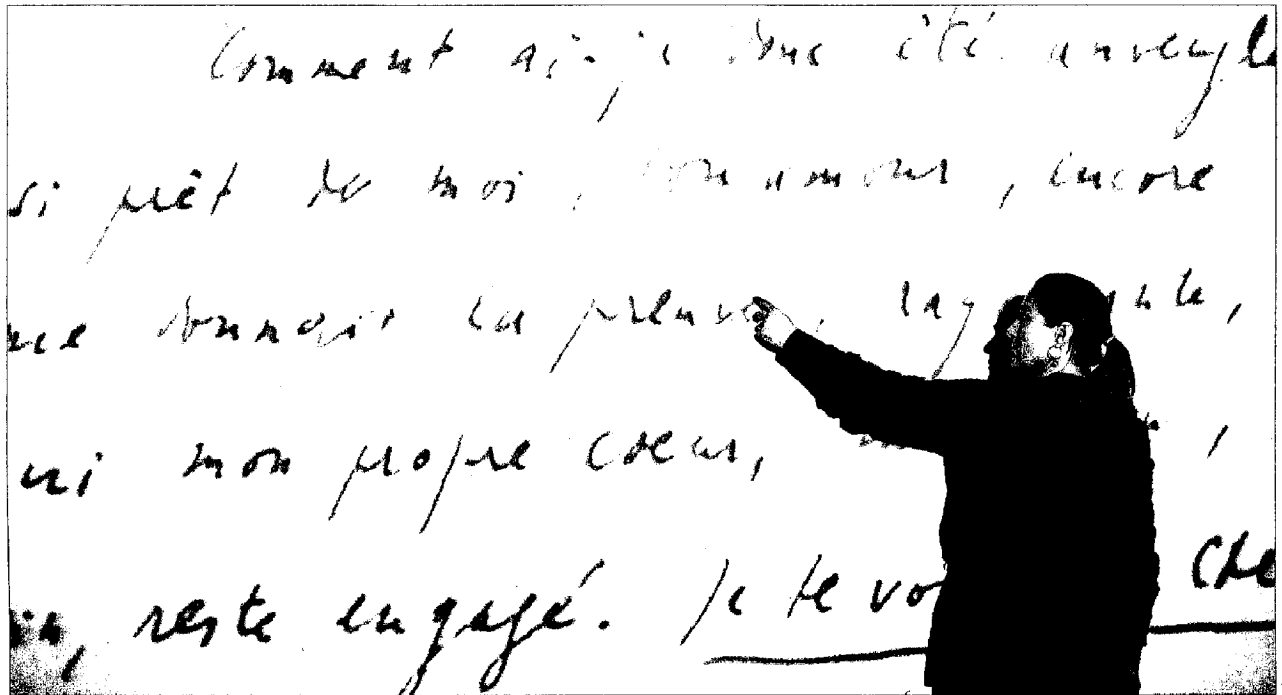 Comment ai-je donc été aveugle
si prêt de moi, ton amour, encore
me donnais la preuve,
mon propre coeur,
reste engagé. Je te